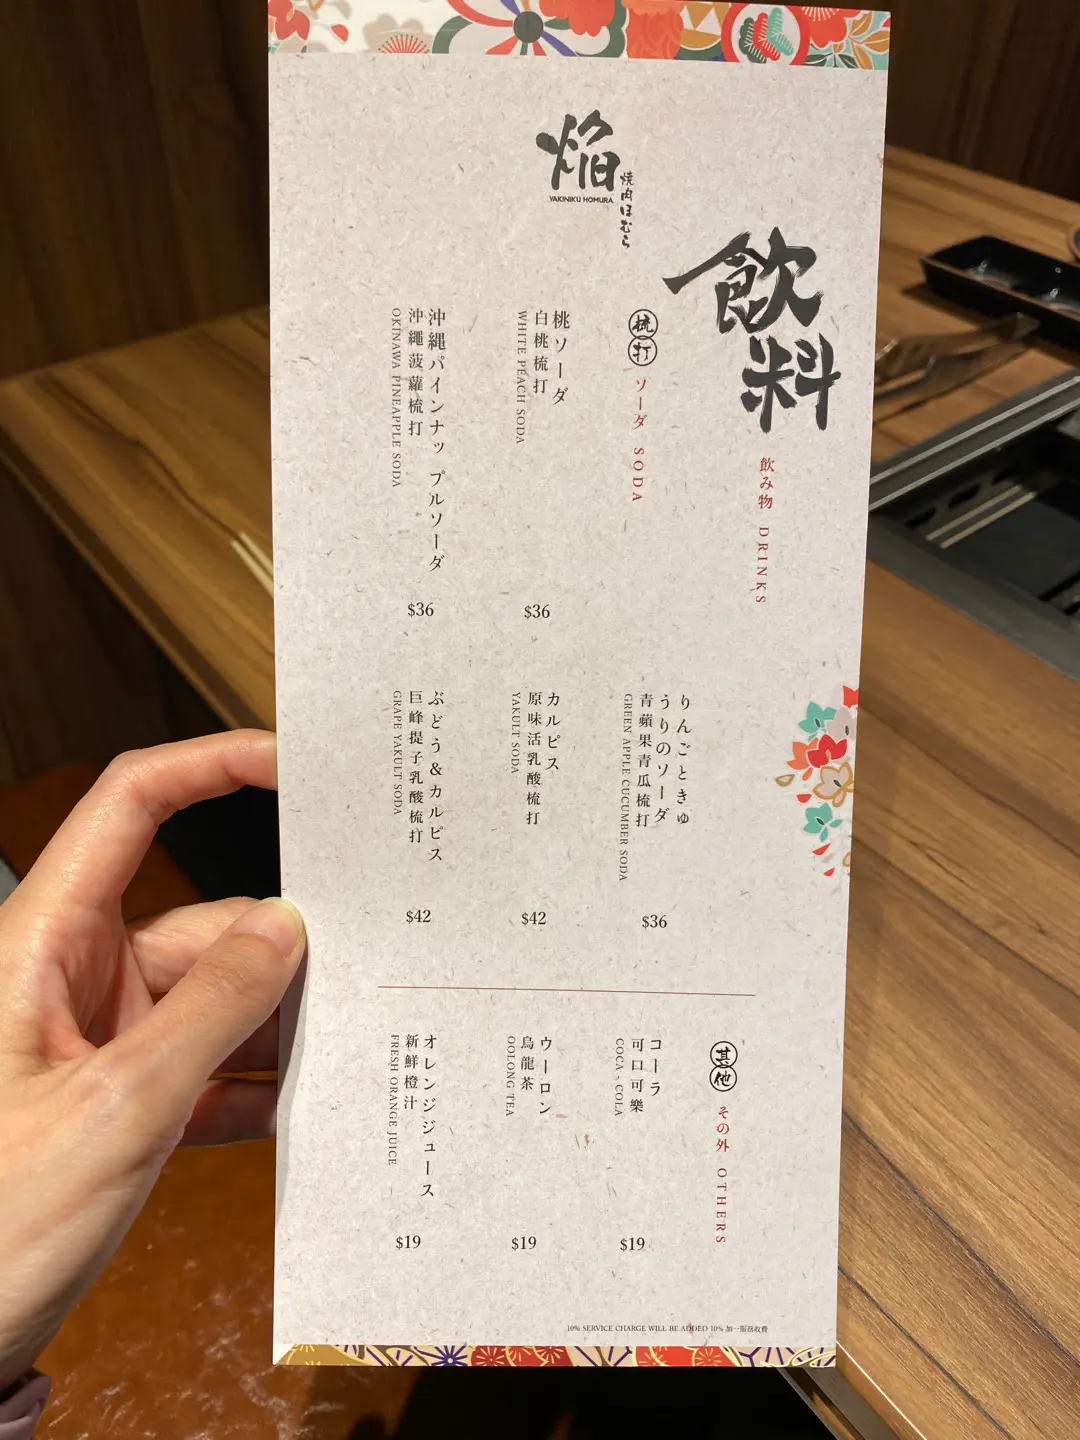 焔
YAKINIKU HOMURA
焼肉ほむら
飲料
飲み物 DRINKS
梳打 ソーダ SODA
桃ソーダ
白桃梳打
WHITE PEACH SODA
$36
沖縄パインナップルソーダ
沖繩菠蘿梳打
OKINAWA PINEAPPLE SODA
$36
りんごときゅ
うりのソーダ
青蘋果青瓜梳打
GREEN APPLE CUCUMBER SODA
$36
カルピス
原味活乳酸梳打
YAKULT SODA
$42
ぶどう&カルピス
巨峰提子乳酸梳打
GRAPE YAKULT SODA
$42
其他 その外 OTHERS
コーラ
可口可樂
COCA、COLA
$19
ウーロン
烏龍茶
OOLONG TEA
$19
オレンジジュース
新鮮橙汁
FRESH ORANGE JUICE
$19
10% SERVICE CHARGE WILL BE ADDED 10% 加一服務收費